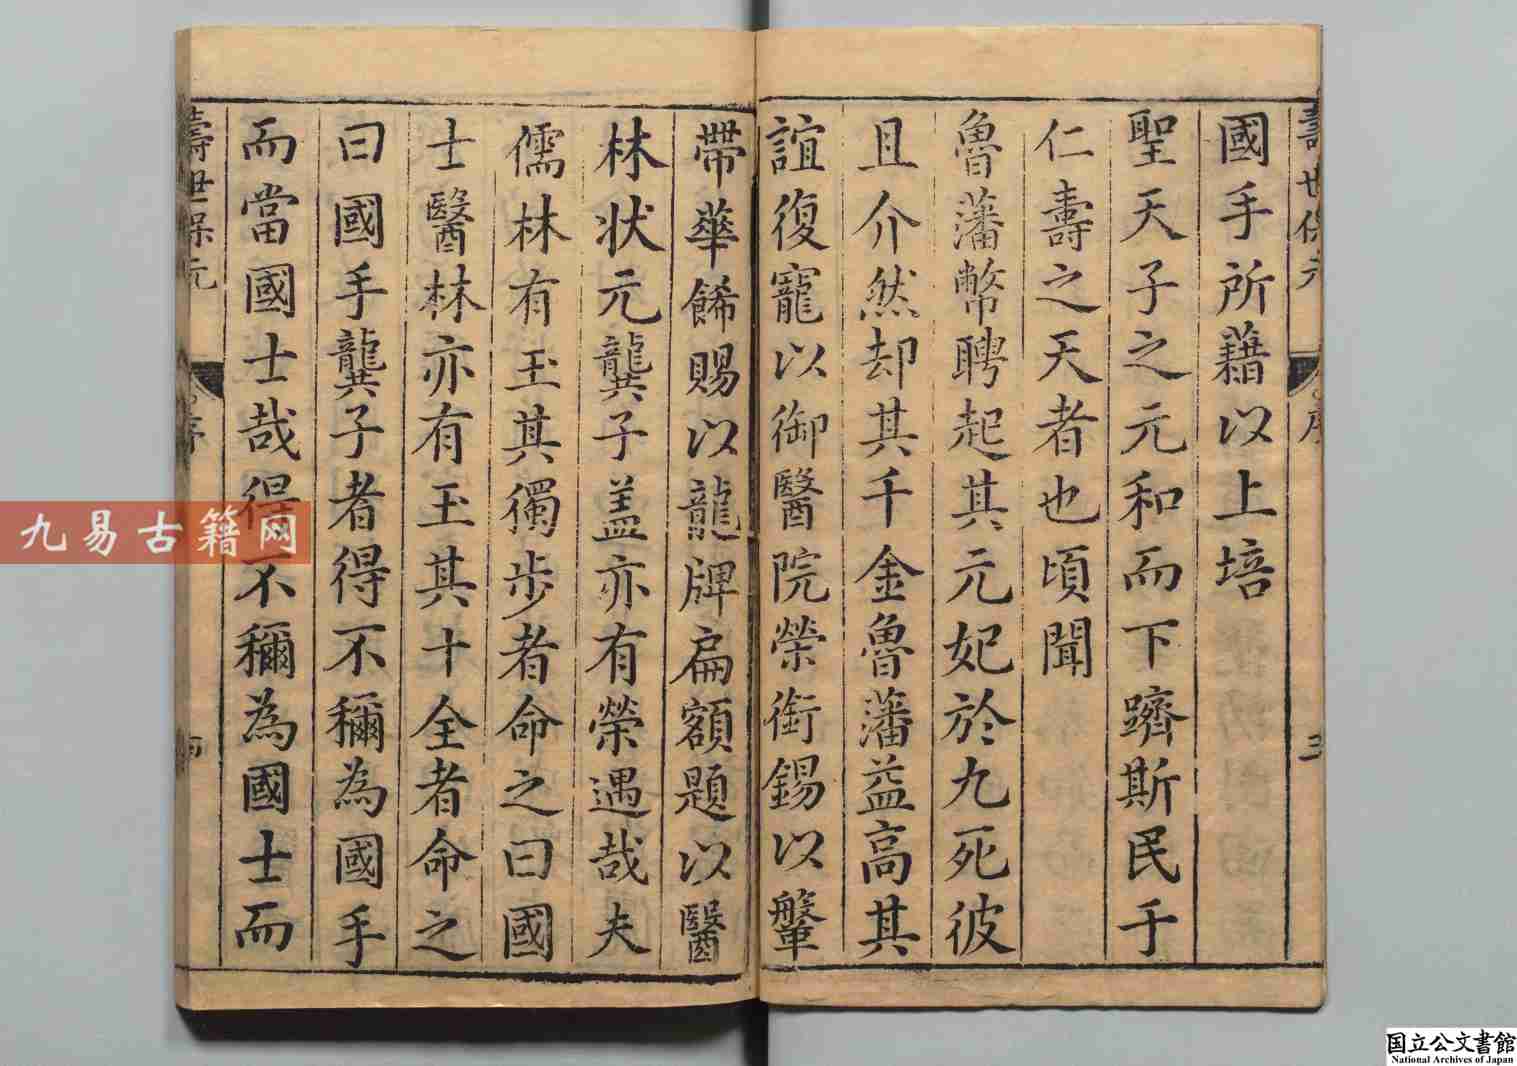 壽世保元
序
三
國手所藉以上培
聖天子之元和而下躋斯民于
仁壽之天者也頃聞
魯藩幣聘起其元妃於九死彼
且介然却其千金魯藩益高其
誼復寵以御醫院榮銜錫以鞶
帶華餙賜以龍牌扁額題以醫
林状元龔子盖亦有榮遇哉夫
儒林有玉其獨步者命之曰國
士醫林亦有玉其十全者命之
曰國手龔子者得不稱為國手
而當國士哉得不稱為國士而
壽世保元
序
九易古籍网
国立公文書館
National Archives of Japan